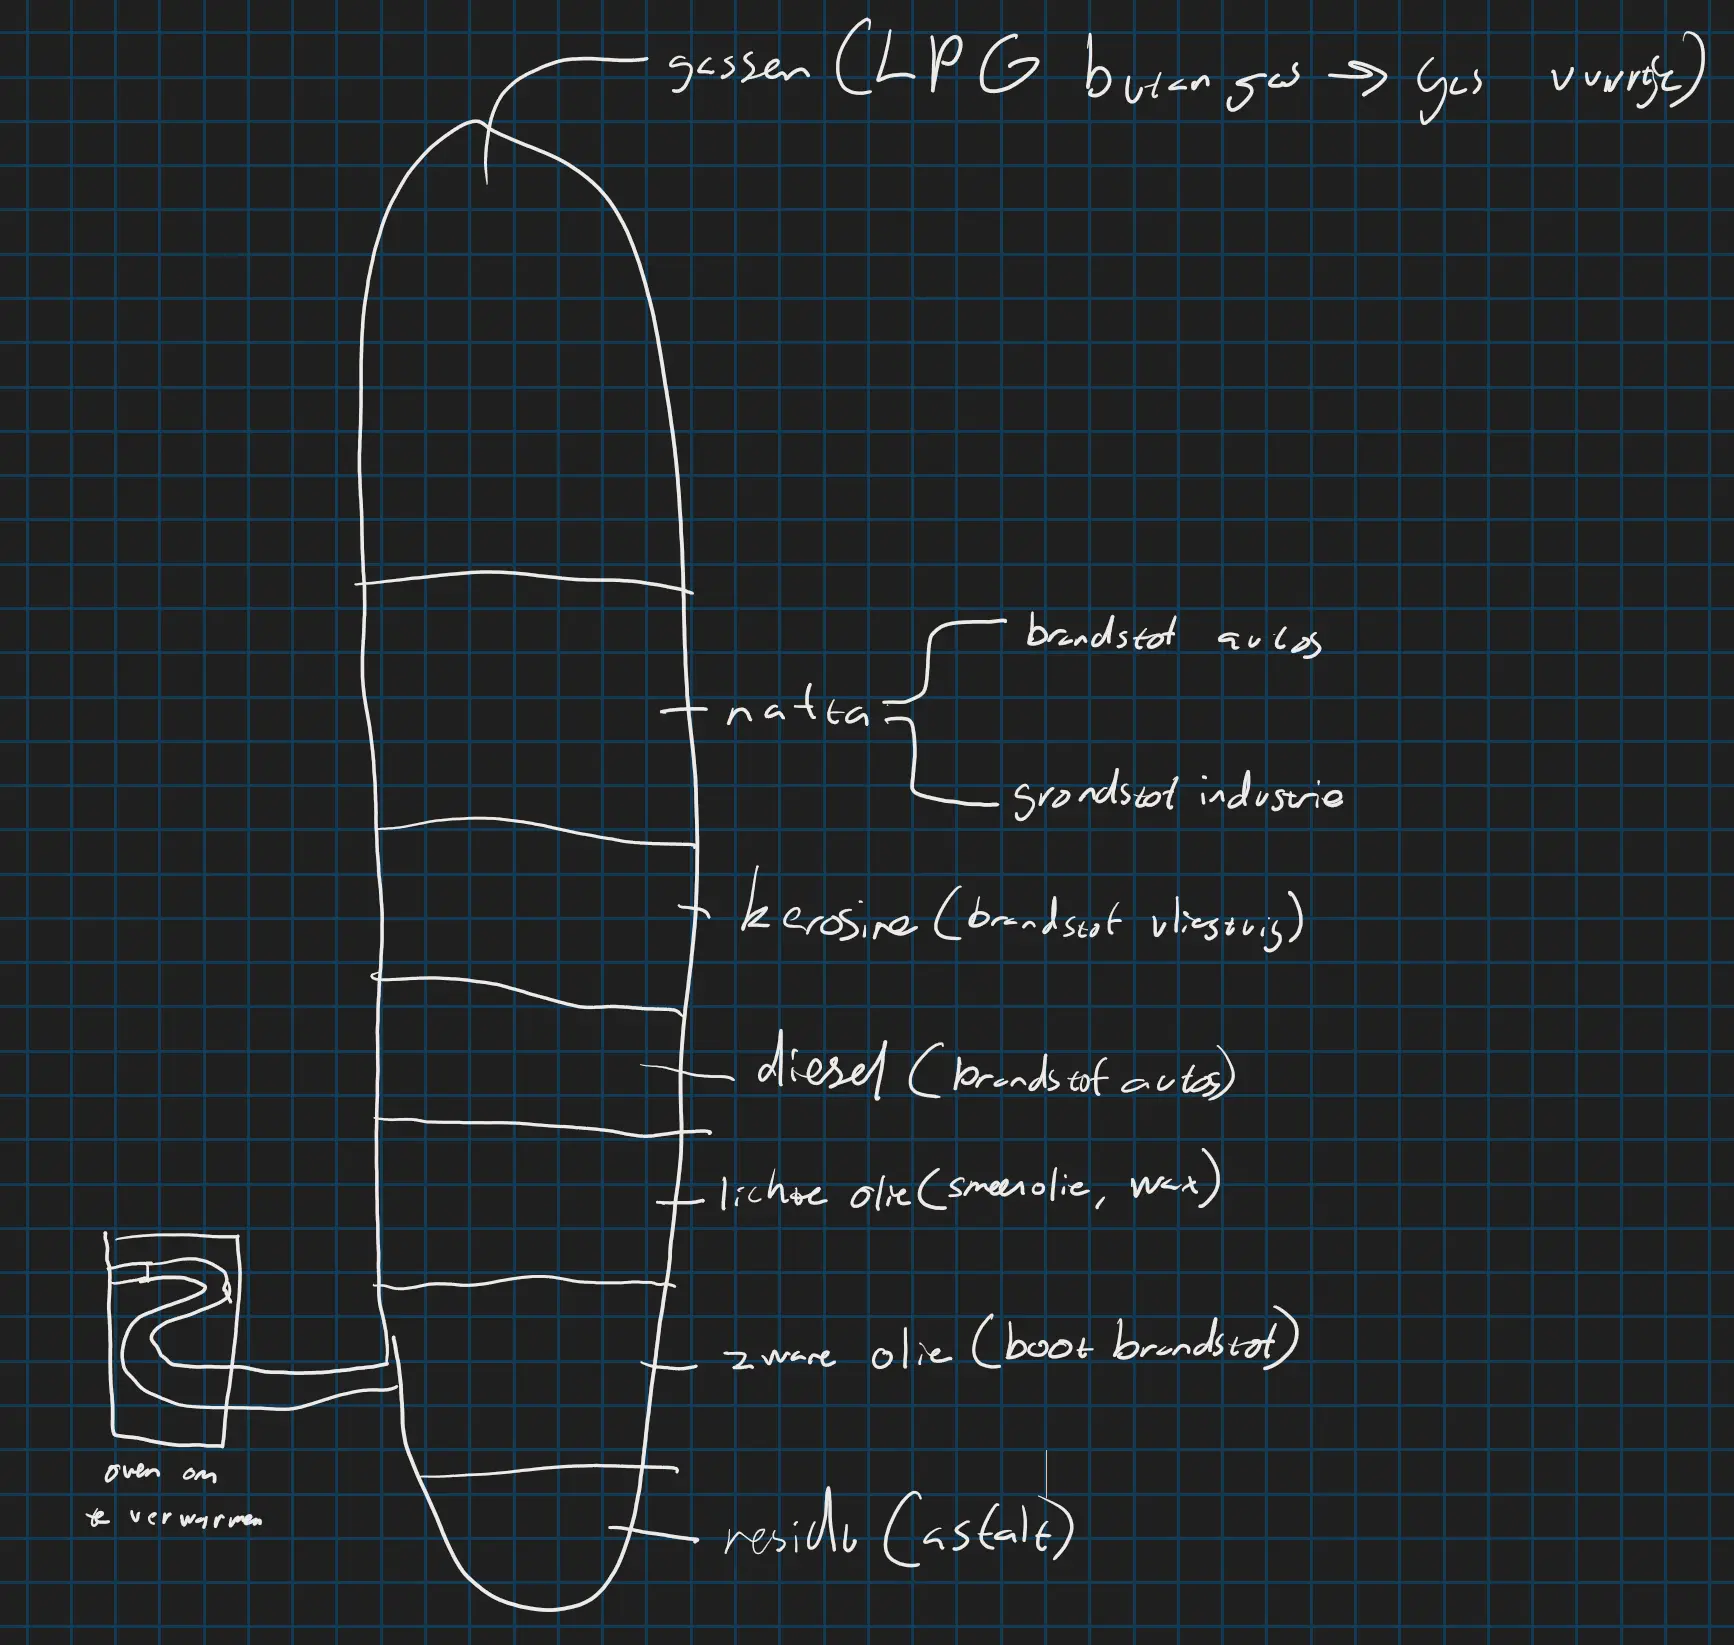 gassen (LPG butan gas → gas vuurtje)
brandstof autos
nafta
grondstof industrie
kerosine (brandstof vliegtuig)
diesel (brandstof autos)
lichte olie (smeerolie, wax)
zware olie (boot brandstof)
oven om
te verwarmen
residu (asfalt)